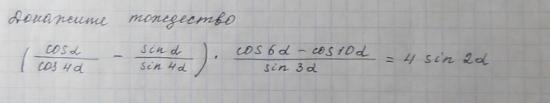 Докажите тождество
(cosα/cos4α − sinα/sin4α) · (cos6α − cos10α)/sin3α = 4 sin2α